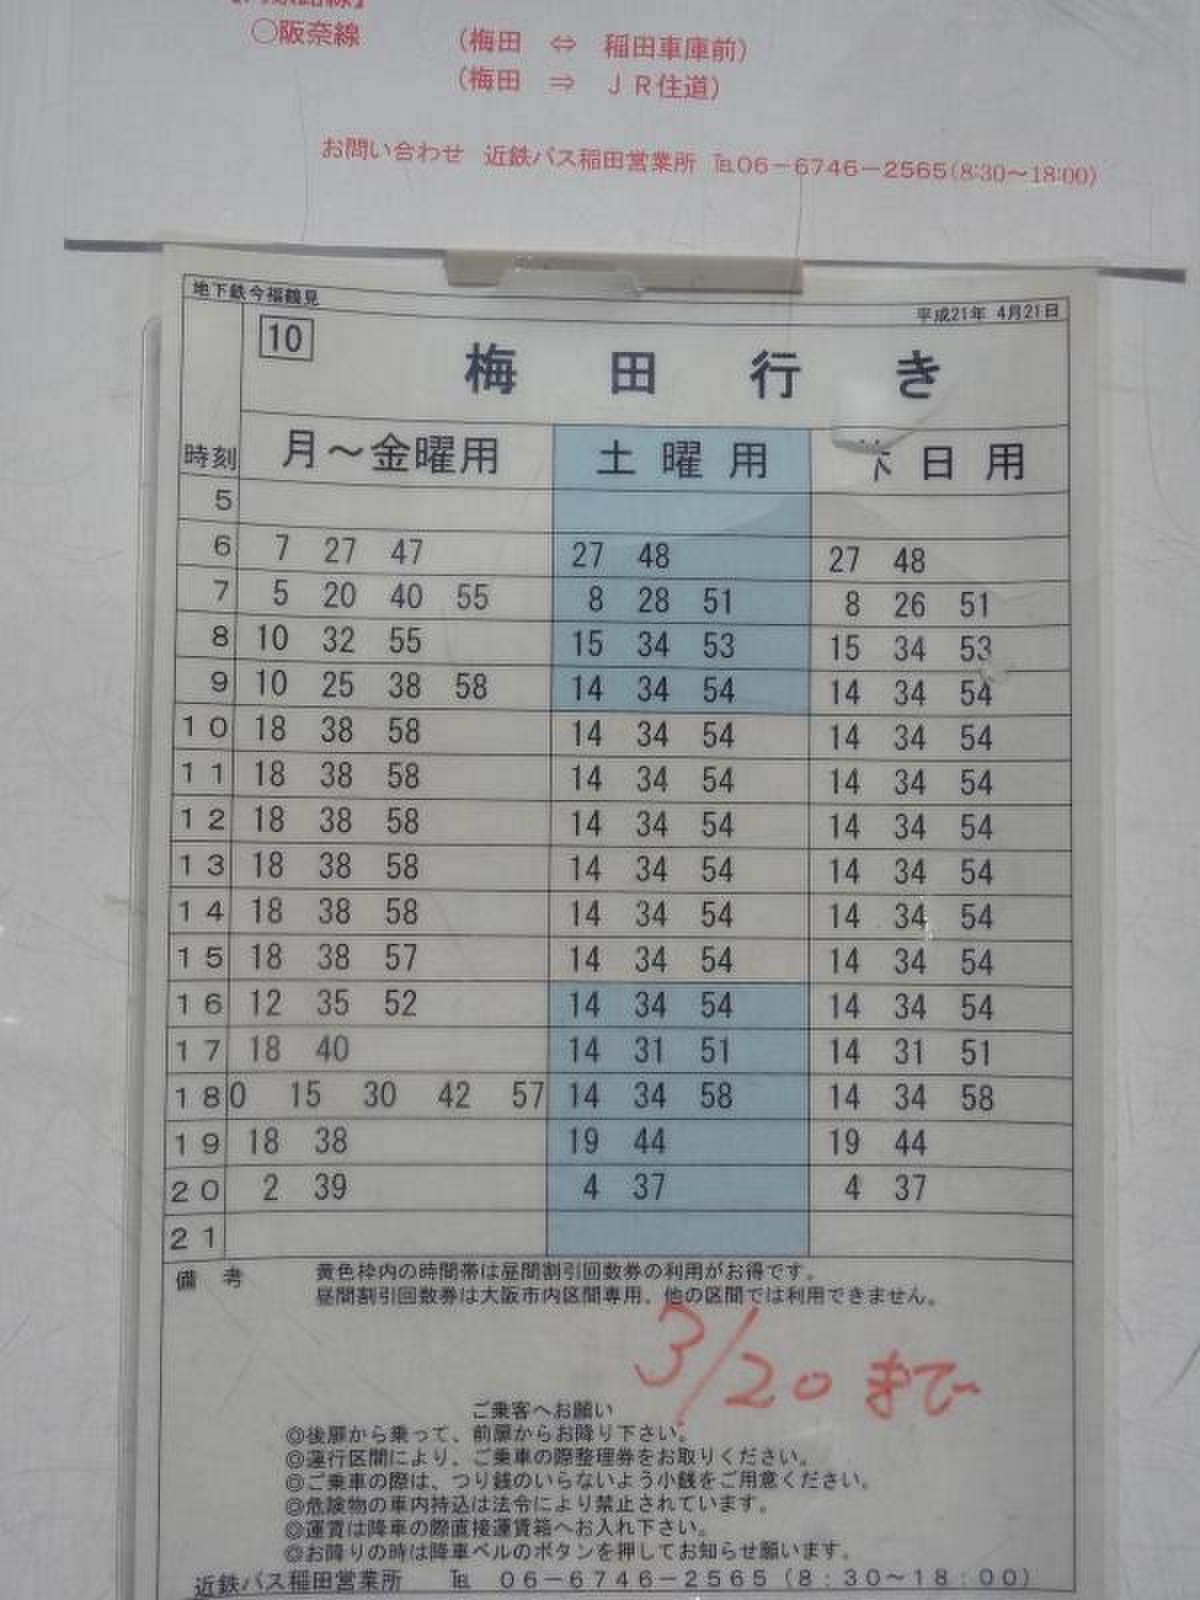 〇阪奈線 (梅田 ⇔ 稲田車庫前)
(梅田 ⇒ JR住道)
お問い合わせ 近鉄バス稲田営業所 ℡06-6746-2565(8:30~18:00)
地下鉄今福鶴見 平成21年 4月21日
10 梅田行き
時刻 月~金曜用 土曜用 日用
5
6 7 27 47 27 48 27 48
7 5 20 40 55 8 28 51 8 26 51
8 10 32 55 15 34 53 15 34 53
9 10 25 38 58 14 34 54 14 34 54
10 18 38 58 14 34 54 14 34 54
11 18 38 58 14 34 54 14 34 54
12 18 38 58 14 34 54 14 34 54
13 18 38 58 14 34 54 14 34 54
14 18 38 58 14 34 54 14 34 54
15 18 38 57 14 34 54 14 34 54
16 12 35 52 14 34 54 14 34 54
17 18 40 14 31 51 14 31 51
18 0 15 30 42 57 14 34 58 14 34 58
19 18 38 19 44 19 44
20 2 39 4 37 4 37
21
備考 黄色枠内の時間帯は昼間割引回数券の利用がお得です。
昼間割引回数券は大阪市内区間専用、他の区間では利用できません。
3/20まで
ご乗客へお願い
◎後扉から乗って、前扉からお降り下さい。
◎運行区間により、ご乗車の際整理券をお取りください。
◎ご乗車の際は、つり銭のいらないよう小銭をご用意ください。
◎危険物の車内持込は法令により禁止されています。
◎運賃は降車の際直接運賃箱へお入れ下さい。
◎お降りの時は降車ベルのボタンを押してお知らせ願います。
近鉄バス稲田営業所 ℡ 06-6746-2565(8:30~18:00)